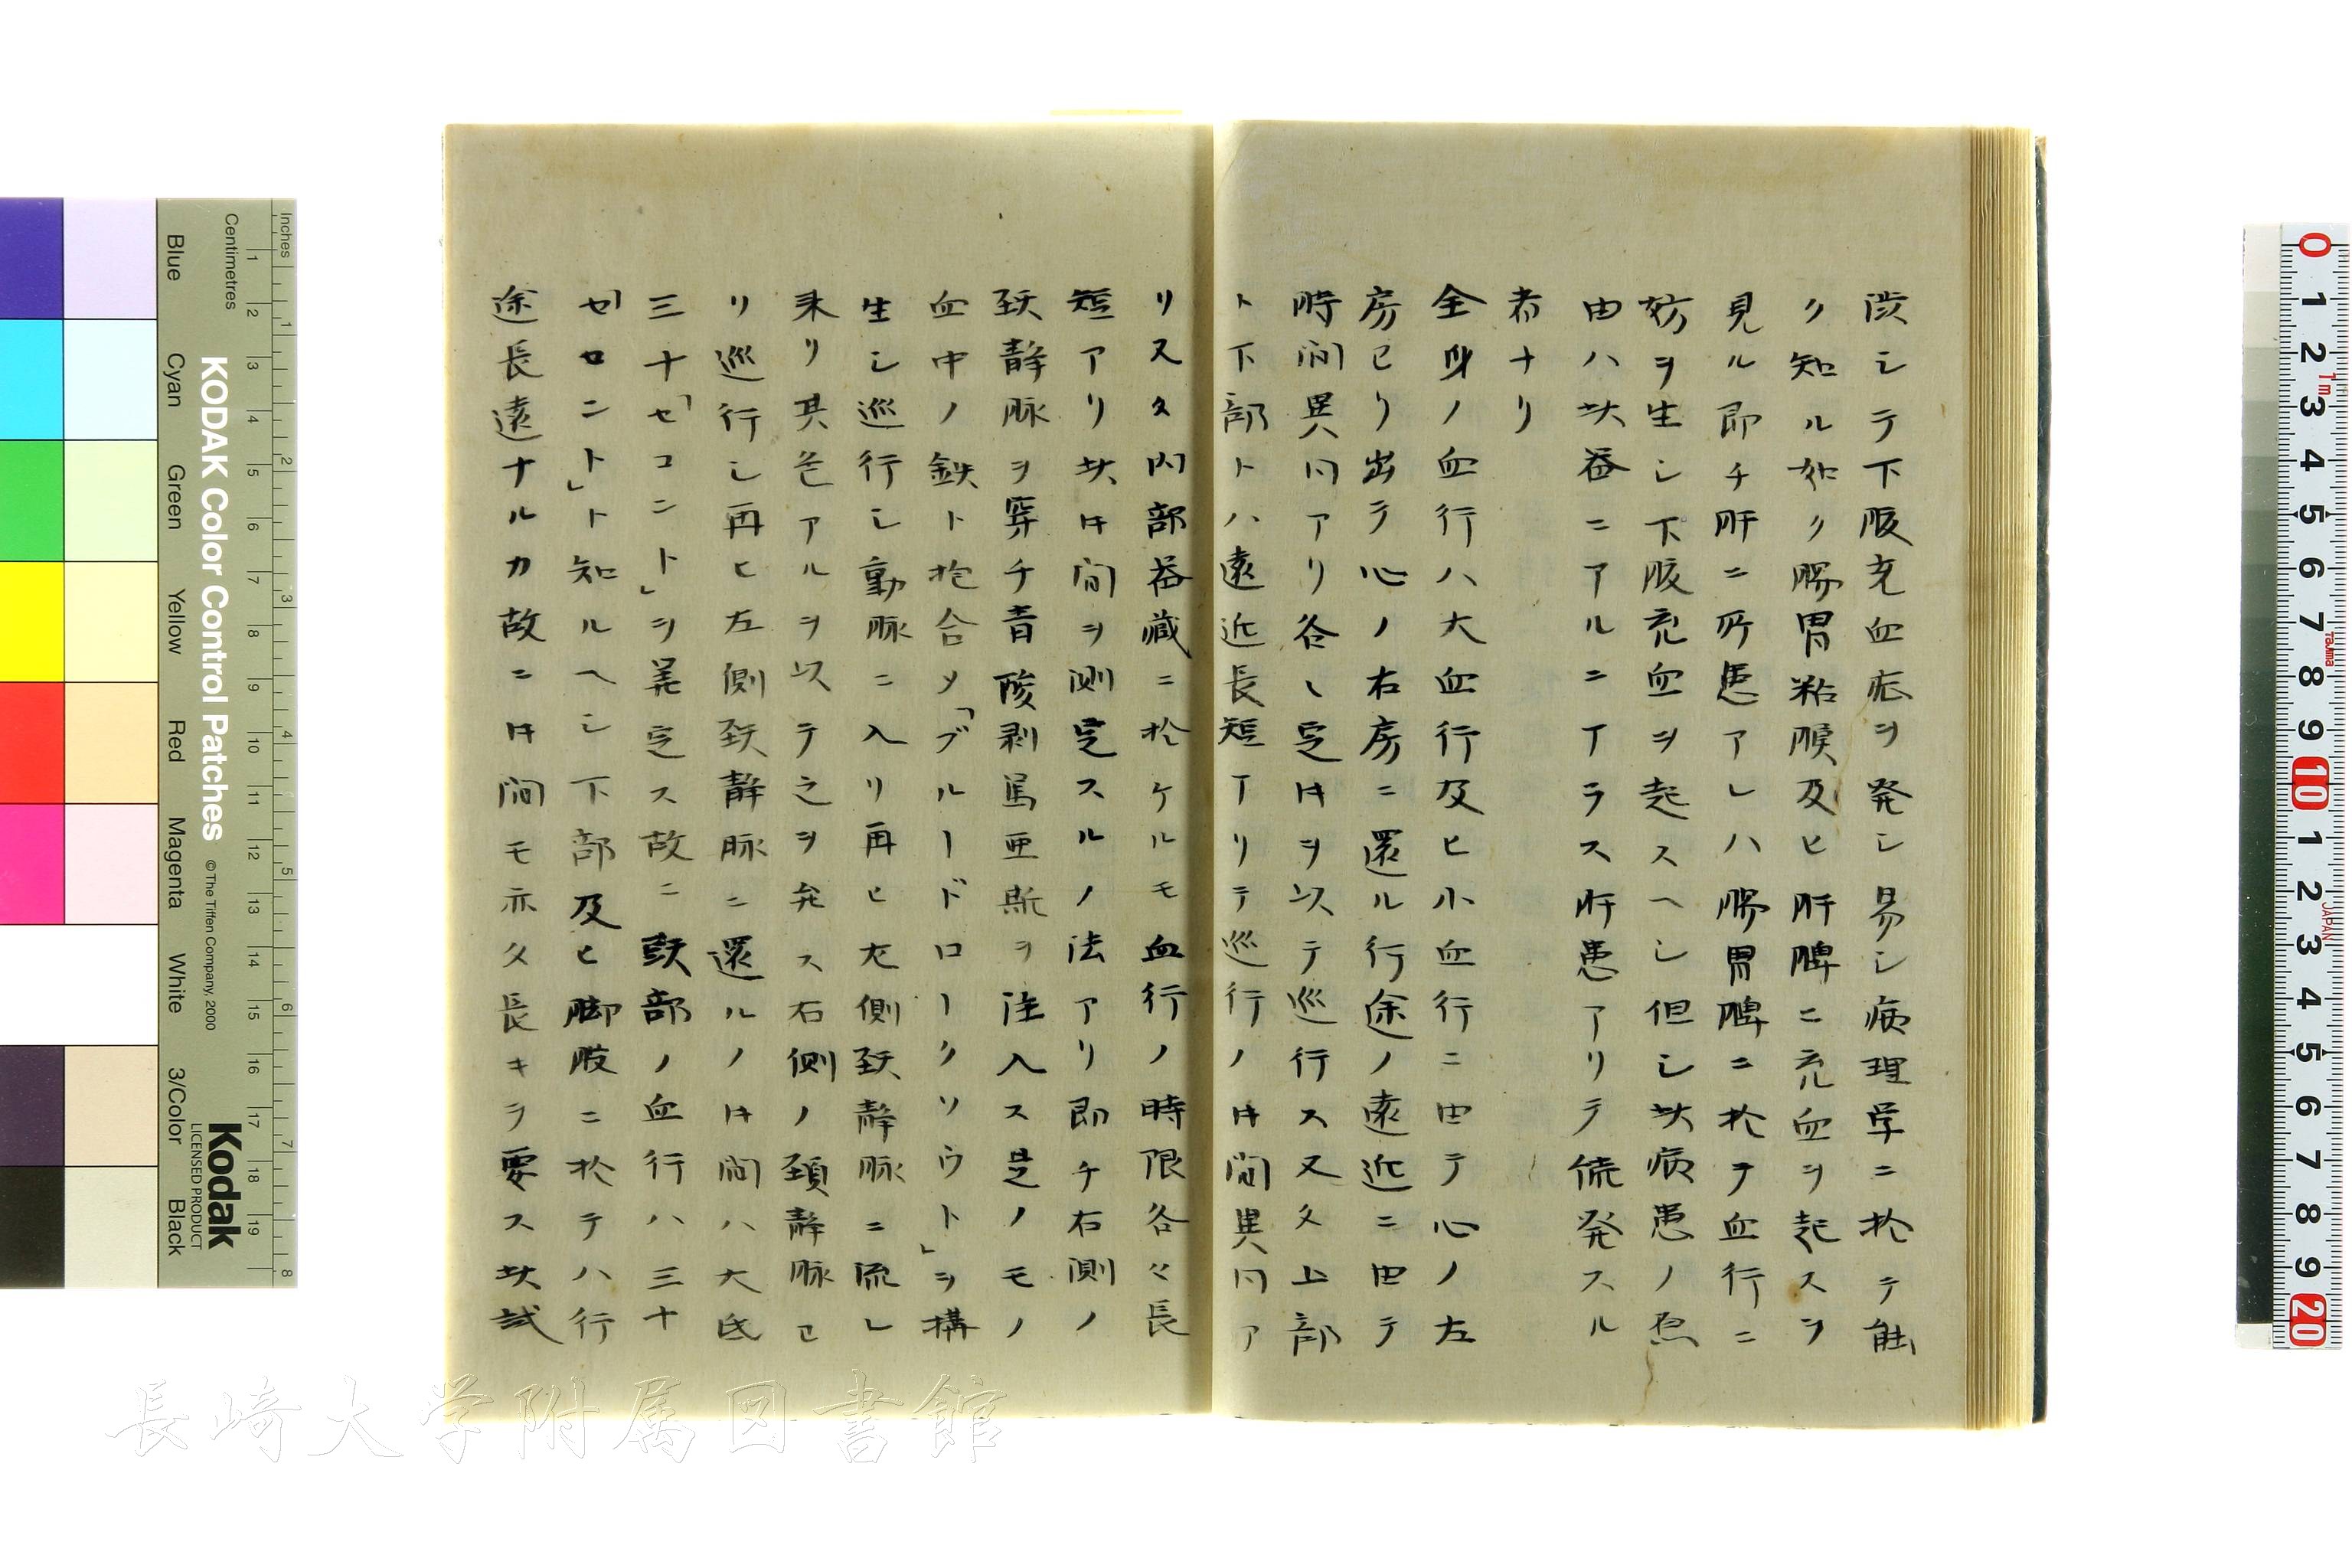 渋シテ下腹充血症ヲ発シ易シ病理学ニ於テ能
ク知ル如ク腸胃粘膜及ヒ肝脾ニ充血ヲ起スヲ
見ル即チ肝ニ所患アレハ腸胃脾ニ於テ血行ニ
妨ヲ生シ下腹充血ヲ起スヘシ但シ此病患ノ原
由ハ此器ニアルニアラス肝患アリテ続発スル
者ナリ
全身ノ血行ハ大血行及ヒ小血行ニ由テ心ノ左
房ヨリ出テ心ノ右房ニ還ル行途ノ遠近ニ由テ
時間異同アリ各々定時ヲ以テ巡行ス又タ上部
ト下部トハ遠近長短アリテ巡行ノ時間異同ア
リ又タ内部器臓ニ於ケルモ血行ノ時限各々長
短アリ此時間ヲ測定スルノ法アリ即チ右側ノ
頚静脈ヲ穿チ青酸剥篤亜斯ヲ注入ス是ノモノ
血中ノ鉄ト抱合メ「ブルードロークソウト」ヲ構
生シ巡行シ動脈ニ入リ再ヒ左側頚静脈ニ流レ
来リ其色アルヲ以テ之ヲ弁ス右側ノ頚静脈ヨ
リ巡行シ再ヒ左側頚静脈ニ還ルノ時間ハ大氐
三十「セコント」ヲ算定ス故ニ頭部ノ血行ハ三十
「セコント」ト知ルヘシ下部及ヒ脚肢ニ於テハ行
途長遠ナルカ故ニ時間モ亦タ長キヲ要ス此試
KODAK Color Control Patches
©The Tiffen Company, 2000
Kodak
LICENSED PRODUCT
Inches
Centimetres
Blue
Cyan
Green
Yellow
Red
Magenta
White
3/Color
Black
長崎大学附属図書館